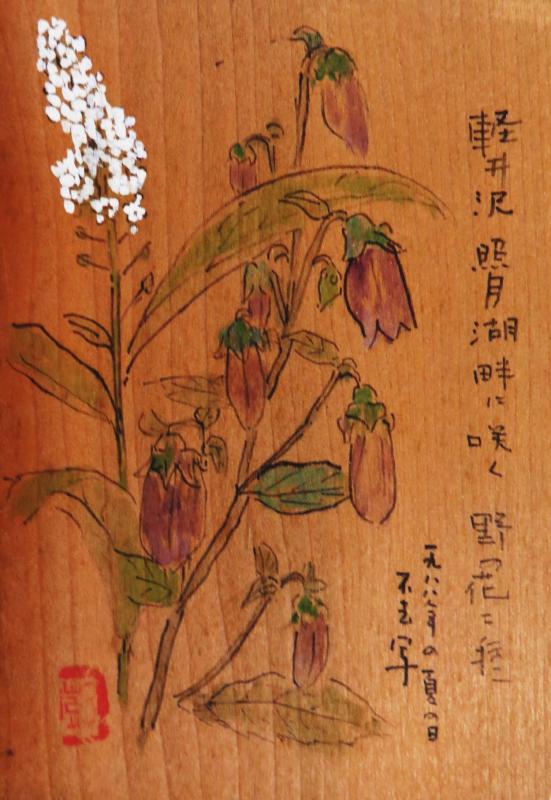 軽井沢 照月湖畔に咲く 野花二種
一九八八年の夏の日
不去写